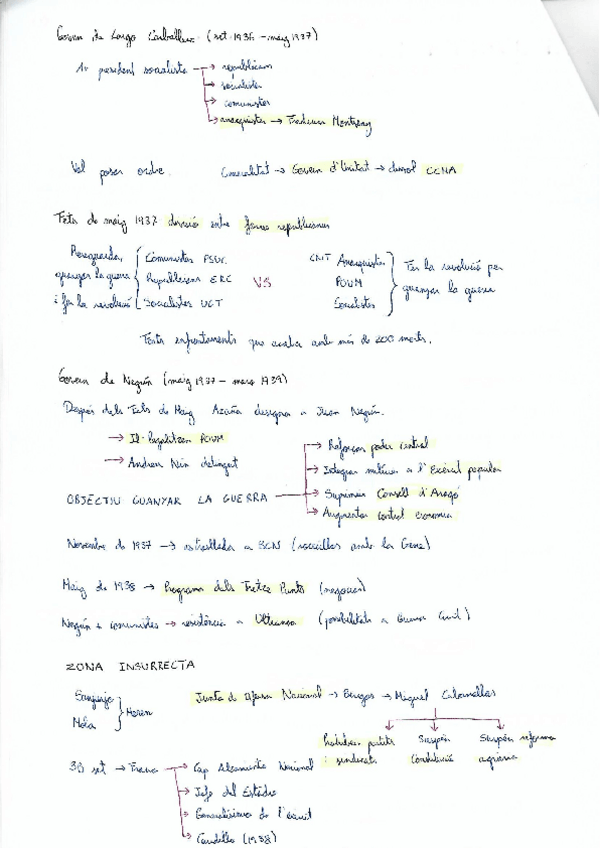 Govern de Largo Caballero (set. 1936 - maig 1937)
1r president socialista → republicans
→ socialistes
→ comunistes
→ anarquistes → Frederica Montseny
Vol posar ordre. Generalitat → Govern d'Unitat → dissol CCMA
Fets de maig 1937 divisió entre forces republicanes
Reraguarda, guanyar la guerra i fer la revolució
Comunistes PSUC
Republicans ERC
Socialistes UGT
VS
CNT Anarquistes
POUM
Socialistes
Fer la revolució per guanyar la guerra
Forts enfrontaments que acaba amb més de 200 morts.
Govern de Negrín (maig 1937 - març 1939)
Després dels Fets de Maig Azaña designa a Juan Negrín.
→ Il·legalitzen POUM
→ Andreu Nin detingut
OBJECTIU GUANYAR LA GUERRA
→ Reforçar poder central
→ Integrar milícies a l'Exèrcit popular
→ Suprimir Consell d'Aragó
→ Augmentar control economia
Novembre de 1937 → es trasllada a BCN (amb la Gene)
Maig de 1938 → Programa dels Tretze Punts (negociar)
Negrín + comunistes → resistència a Ultrança (possibilitats a Guerra Civil)
ZONA INSURRECTA
Sanjurjo
Mola
Moren
Junta de Defensa Nacional → Burgos → Miguel Cabanellas
Prohibeix partits i sindicats
Suspèn Constitució
Suspèn reforma agrària
30 set → Franco → Cap Alzamiento Nacional
→ Jefe del Estado
→ Generalísimo de l'èxercit
→ Caudillo (1938)